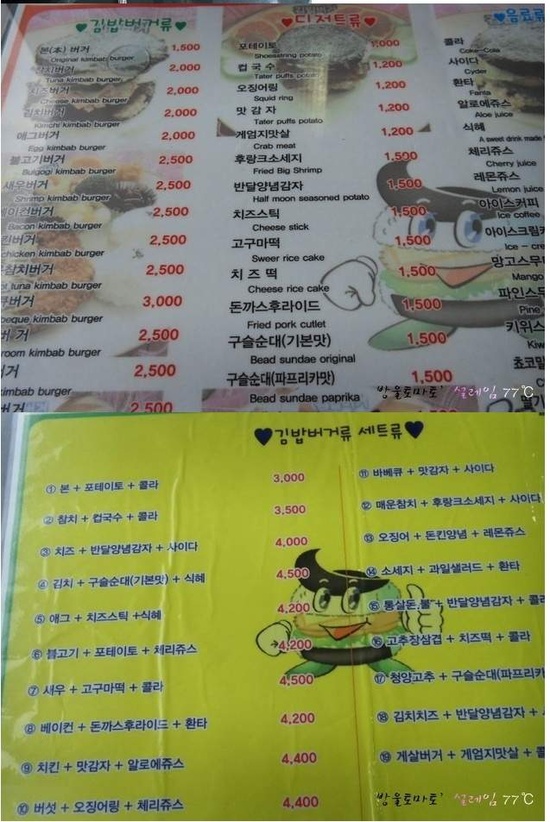 ♥김밥버거류♥
본(本) 버거 1,500
Original kimbab burger
참치버거 2,000
Tuna kimbab burger
치즈버거 2,000
Cheese kimbab burger
김치버거 2,000
Kimchi kimbab burger
애그버거 2,000
Egg kimbab burger
불고기버거 2,500
Bulgogi kimbab burger
새우버거 2,500
Shrimp kimbab burger
베이컨버거 2,500
Bacon kimbab burger
치킨버거 2,500
chicken kimbab burger
참치버거 2,500
tuna kimbab burger
3,000
beque kimbab burger
버거 2,500
room kimbab burger
버거 2,500
kimbab burger
버거 2,500
♥디저트류♥
포테이토 1,000
Shoestring potato
컵국수 1,200
Tater puffs potato
오징어링 1,200
Squid ring
맛감자 1,200
Tater puffs potato
게엄지맛살 1,200
Crab meat
후랑크소세지 1,500
Fried Big Shrimp
반달양념감자 1,500
Half moon seasoned potato
치즈스틱 1,500
Cheese stick
고구마떡 1,500
Sweer rice cake
치즈떡 1,500
Cheese rice cake
돈까스후라이드 1,500
Fried pork cutlet
구슬순대(기본맛) 1,500
Bead sundae original
구슬순대(파프리카맛) 1,500
Bead sundae paprika
♥음료류
콜라
Coke-Cola
사이다
Cyder
환타
Fanta
알로에쥬스
Aloe juice
식혜
A sweet drink made
체리쥬스
Cherry juice
레몬쥬스
Lemon juice
아이스커피
Ice coffee
아이스크림
Ice - cre
망고스무
Mango
파인스무
Pine
키위스
Kiw
쵸코밀
방울토마토' 설레임 77℃
♥김밥버거류 세트류♥
① 본 + 포테이토 + 콜라 3,000
② 참치 + 컵국수 + 콜라 3,500
③ 치즈 + 반달양념감자 + 사이다 4,000
④ 김치 + 구슬순대(기본맛) + 식혜 4,500
⑤ 애그 + 치즈스틱 +식혜 4,200
⑥ 불고기 + 포테이토 + 체리쥬스 4,200
⑦ 새우 + 고구마떡 + 콜라 4,500
⑧ 베이컨 + 돈까스후라이드 + 환타 4,200
⑨ 치킨 + 맛감자 + 알로에쥬스 4,400
⑩ 버섯 + 오징어링 + 체리쥬스 4,400
⑪ 바베큐 + 맛감자 + 사이다
⑫ 매운참치 + 후랑크소세지 + 사이다
⑬ 오징어 + 돈킨양념 + 레몬쥬스
⑭ 소세지 + 과일샐러드 + 환타
⑮ 통살돈불 + 반달양념감자 + 콜라
⑯ 고추장삼겹 + 치즈떡 + 콜라
⑰ 청양고추 + 구슬순대(파프리카
⑱ 김치치즈 + 반달양념감자 +
⑲ 게살버거 + 게엄지맛살 + 콜
방울토마토' 설레임 77℃